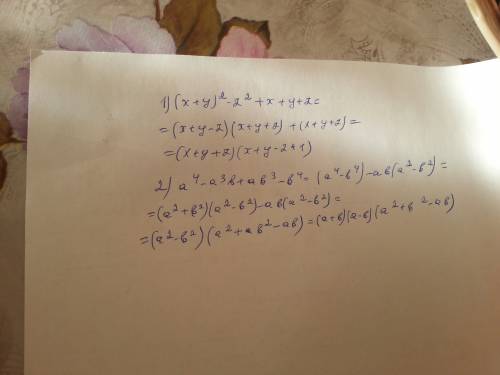 1) (x+y)²-z²+x+y+z=
=(x+y-z)(x+y+z)+(x+y+z)=
=(x+y+z)(x+y-z+1)
2) a⁴-a³b+ab³-b⁴=(a⁴-b⁴)-ab(a²-b²)=
=(a²+b²)(a²-b²)-ab(a²-b²)=
=(a²-b²)(a²+b²-ab)=(a+b)(a-b)(a²+b²-ab)